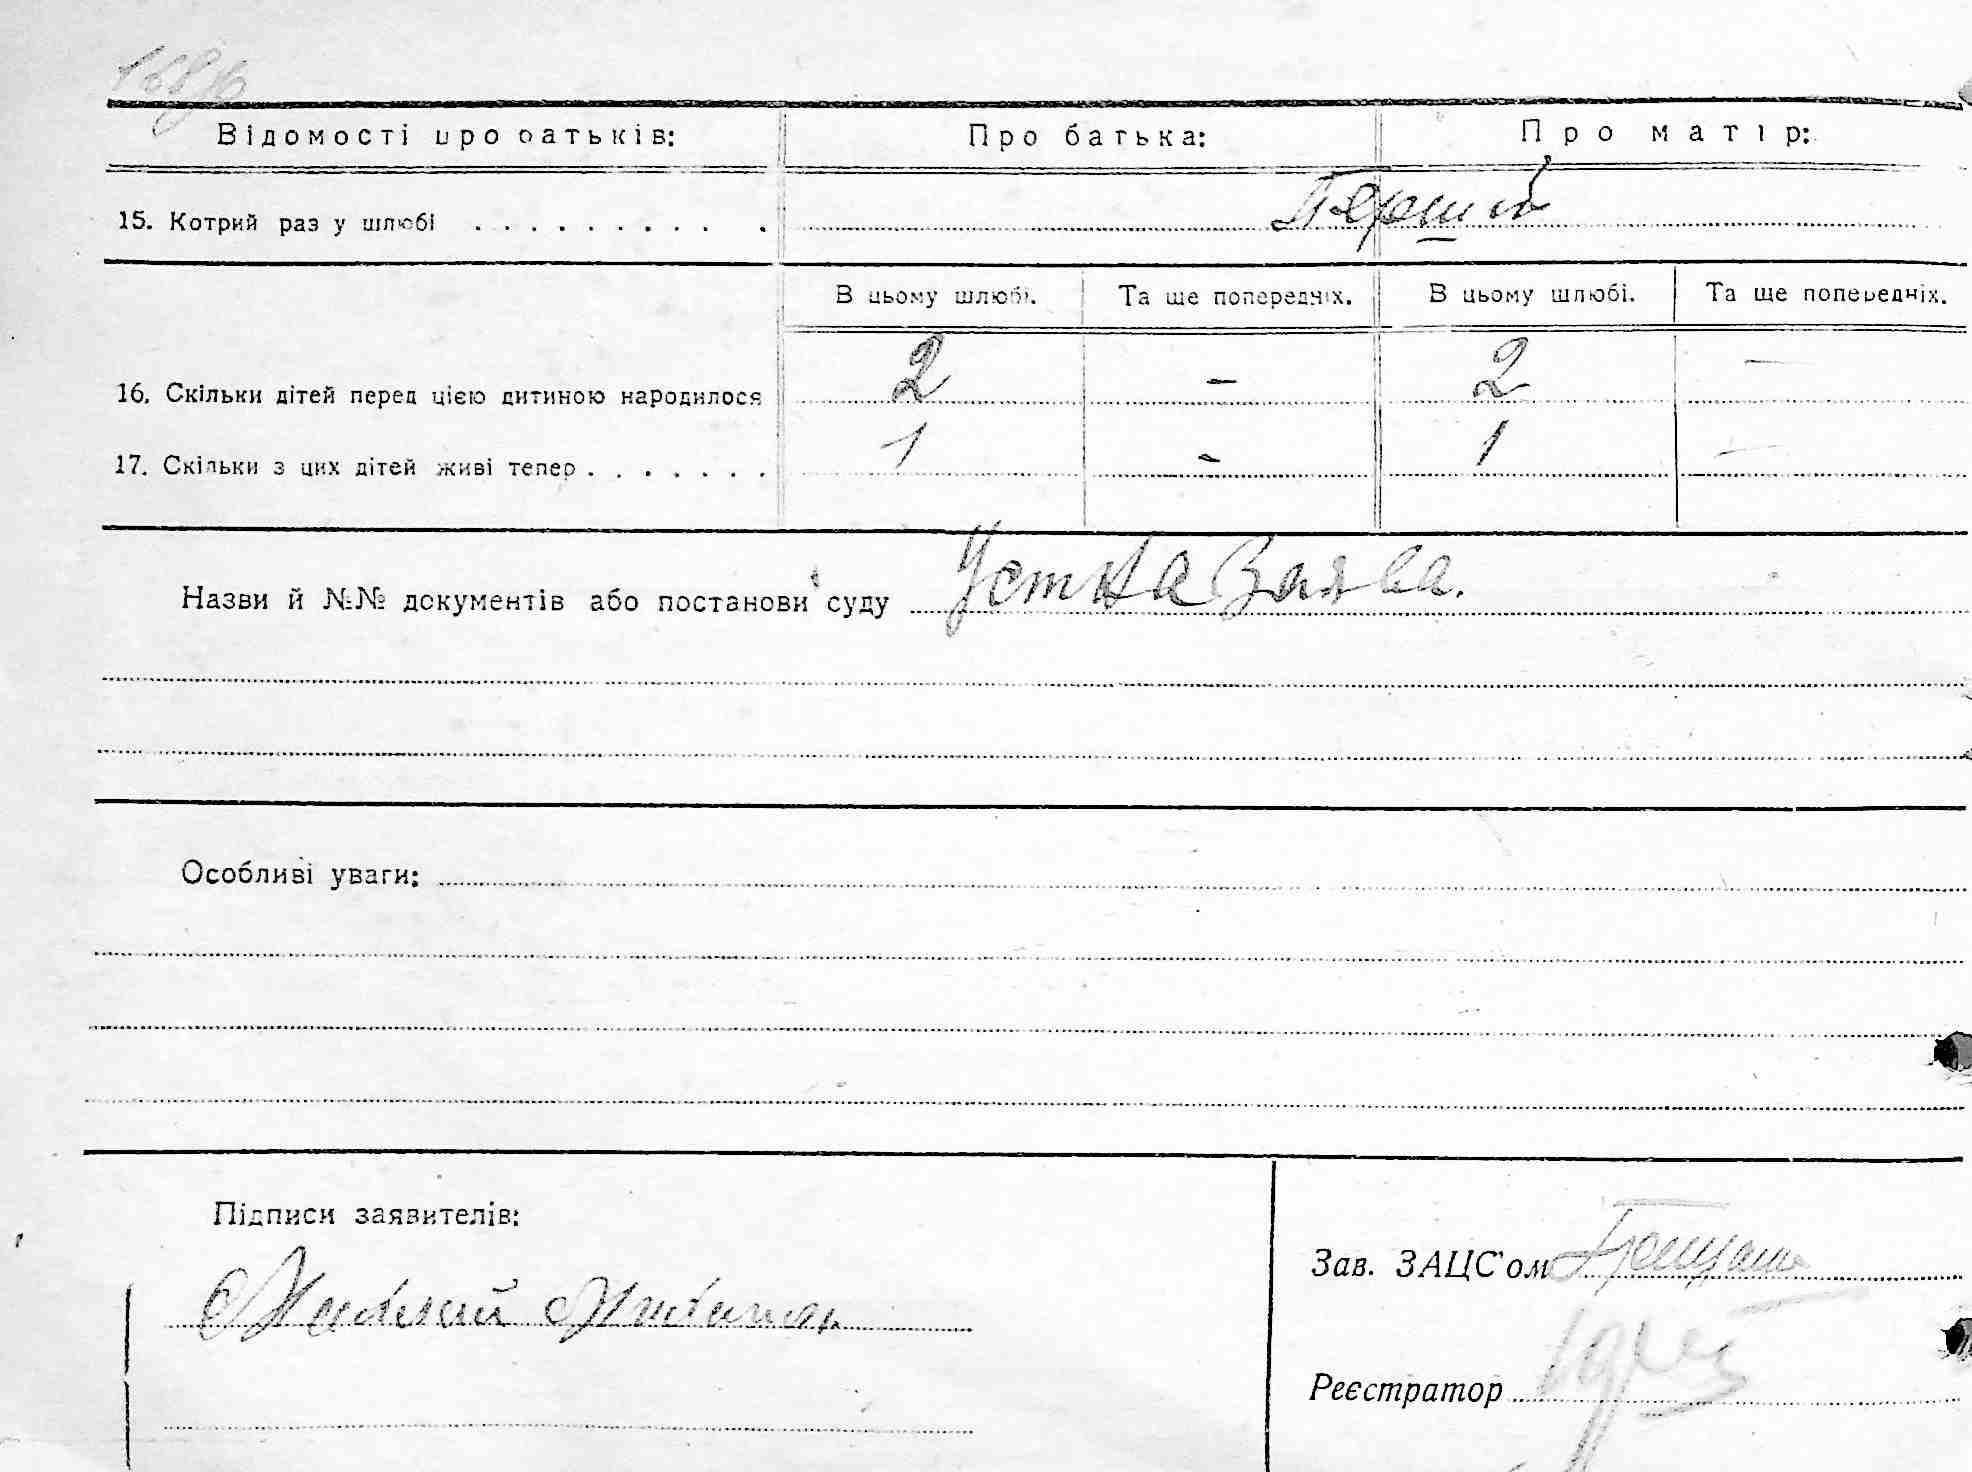 Відомості про батьків: Про батька: Про матір:
15. Котрий раз у шлюбі . . . . . . . . . . Перший
В цьому шлюбі. Та ще попередніх. В цьому шлюбі. Та ще попередніх.
16. Скільки дітей перед цією дитиною народилося 2 - 2 -
17. Скільки з цих дітей живі тепер . . . . . . . 1 - 1 -
Назви й №№ документів або постанови суду Устна Заява.
Особливі уваги:
Підписи заявителів:
Зав. ЗАЦС'ом
Реєстратор